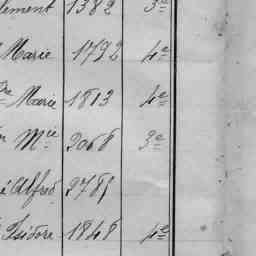 lement 1382 3e
Marie 1792 4e
Marie 1813 4e
Mie 2068 3e
é Alfred 2785
Isidore 1848 4e